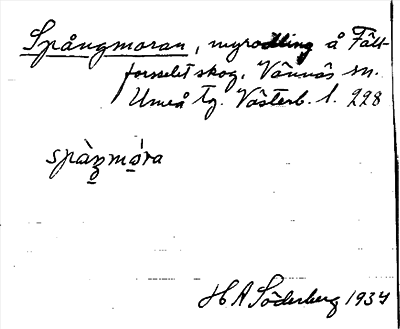 Spångmoran, myrodling å Fält-
forsselet skog. Vännäs sn.
Umeå tg. Västerb. l. 228
spàŋmóra
H A Söderberg 1934